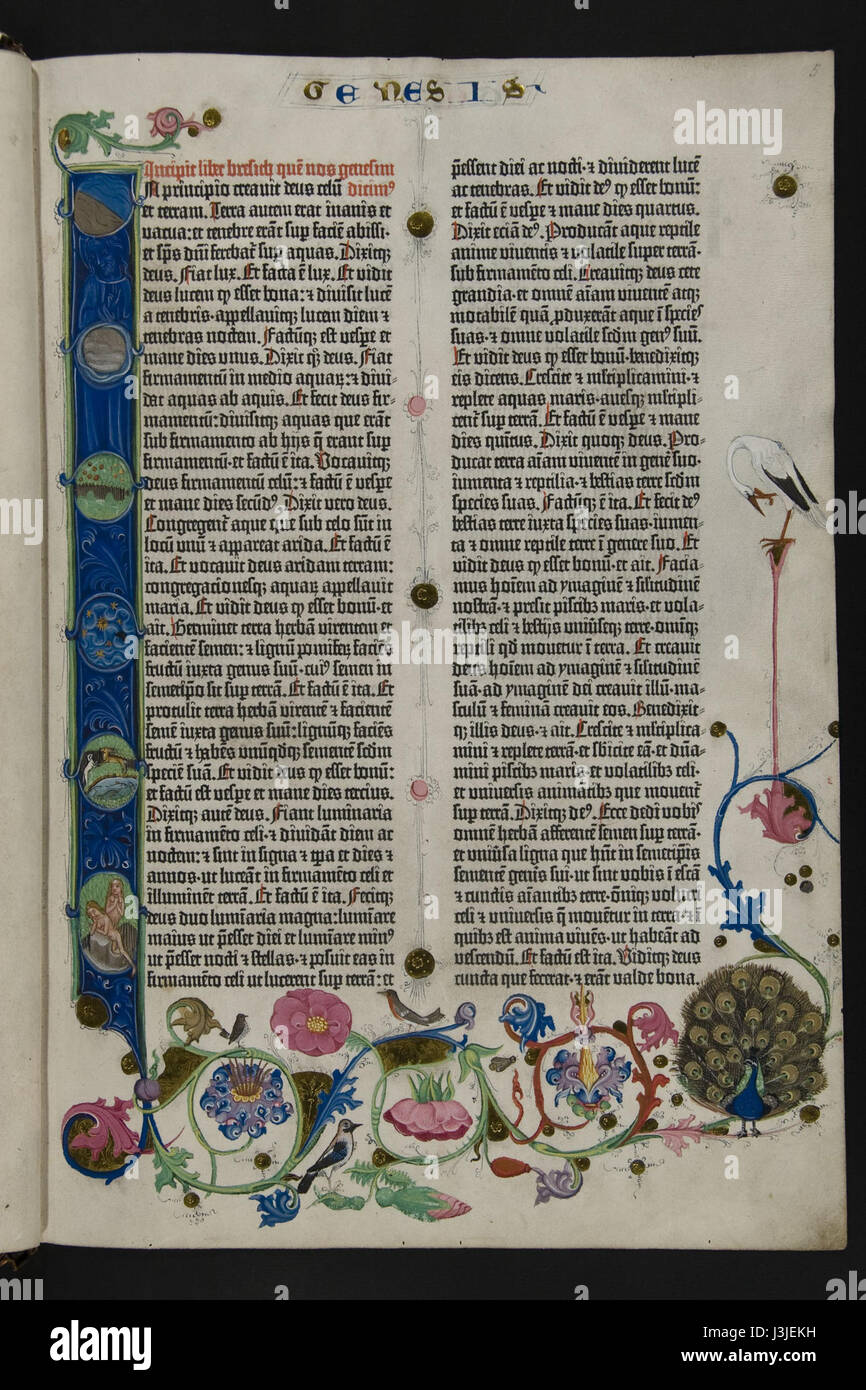 GENESIS
5
Incipit liber bresich quē nos genesim
In principio creavit deus celū dicimꝰ
et terram. Terra autem erat inanis et
vacua: et tenebre erāt sup faciē abissi·
et spūs dñi ferebat̄ sup aquas. Dixitqꝫ
deus. Fiat lux. Et facta ē lux. Et vidit
deus lucem ꝙ esset bona: ⁊ divisit lucē
a tenebris·appellavitqꝫ lucem diem ⁊
tenebras noctem. Factūqꝫ est vespe et
mane dies unus. Dixit qꝫ deus. Fiat
firmamentū in medio aquaꝝ: ⁊ divi-
dat aquas ab aquis. Et fecit deus fir-
mamentū: divisitqꝫ aquas que erāt
sub firmamento ab hijs q̄ erant sup
firmamentū· et factū ē ita. Vocavitqꝫ
deus firmamentū celū: ⁊ factū ē vespe
et mane dies secūdꝰ. Dixit vero deus.
Congregent̄ aque que sub celo sūt in
locū unū ⁊ appareat arida. Et factū ē
ita. Et vocavit deus aridam terram:
congregacionesqꝫ aquaꝝ appellavit
maria. Et vidit deus ꝙ esset bonū· et
ait. Germinet terra herbā virentem et
facientē semen: ⁊ lignū pomifeꝝ faciēs
fructū iuxta genus suū: cuiꝰ semen in
semetipō sit sup terrā. Et factū ē ita. Et
protulit terra herbā virentē ⁊ facientē
semē iuxta genus suū: lignūqꝫ faciēs
fructū ⁊ habēs unūqdqꝫ sementē scdm
speciē suā. Et vidit deus ꝙ esset bonū:
et factū est vespe et mane dies tercius.
Dixitqꝫ autē deus. Fiant luminaria
in firmamēto celi· ⁊ dividāt diem ac
noctem: ⁊ sint in signa ⁊ tpa et dies ⁊
annos· ut luceāt in firmamēto celi et
illuminēt terrā. Et factū ē ita. Fecitqꝫ
deus duo luminaria magna: lumiare
maius ut pesset diei et lumiare minꝰ
ut pesset nocti ⁊ stellas· ⁊ posuit eas in
firmamēto celi ut lucerent sup terrā: et
pessent diei ac nocti· ⁊ dividerent lucē
ac tenebras. Et vidit deꝰ ꝙ esset bonū:
et factū ē vespe ⁊ mane dies quartus.
Dixit eciā deꝰ. Producāt aque reptile
anime viventis ⁊ volatile super terrā·
sub firmamēto celi. Creavitqꝫ deus cete
grandia· et omnē aīam viventē atqꝫ
motabilē quā pduxerāt aque ī speciesꝰ
suas· ⁊ omne volatile scdm genꝰ suū.
Et vidit deus ꝙ esset bonū· benedixitqꝫ
eis dicens. Crescite ⁊ mltiplicamini· ⁊
replete aquas maris· avesqꝫ mltipli-
cent̄ sup terrā. Et factū ē vespe ⁊ mane
dies quītus. Dixit quoqꝫ deus. Pro-
ducat terra aīam viventē in genē suo·
iumenta ⁊ reptilia· ⁊ bestias terre scdm
species suas. Factūqꝫ ē ita. Et fecit deꝰ
bestias terre iuxta species suas· iumen-
ta ⁊ omne reptile terre ī genere suo. Et
vidit deus ꝙ esset bonū· et ait. Facia-
mus hoīem ad ymaginē ⁊ silitudinē
nostrā· ⁊ presit piscibꝫ maris· et vola-
tilibꝫ celi ⁊ bestijs univseqꝫ terre· omīqꝫ
reptili qd movetur ī terra. Et creavit
deus hoīem ad ymaginē et silitudinē
suā· ad ymaginē dei creavit illū· ma-
sculū ⁊ feminā creavit eos. Benedixit-
qꝫ illis deus· ⁊ ait. Crescite ⁊ mltiplica-
mini ⁊ replete terrā· et sbicite eā· et dña-
mini piscibꝫ maris· et volatilibꝫ celi·
et universis animātibꝫ que moventʳ
sup terrā. Dixitqꝫ deꝰ. Ecce dedi vobis
omnē herbā afferentē semen sup terrā·
et univsa ligna que hñt in semetipsis
sementē genis sui· ut sint vobis ī escā
⁊ cunctis aīantibꝫ terre· omīqꝫ volucri
celi ⁊ universis q̄ movētur in terra· ⁊ ī
quibꝫ est anima vivēs· ut habeāt ad
vescendū. Et factū est ita. Viditqꝫ deus
cuncta que fecerat· ⁊ erāt valde bona.
alamy stock photo
alamy
Image ID: J3JEKH
www.alamy.com